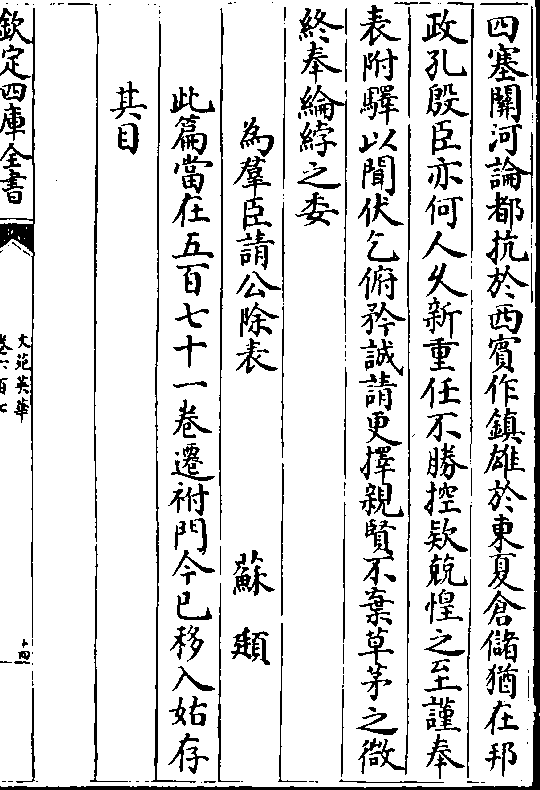 四塞關河論都抗於西賓作鎮雄於東夏倉儲猶在邦
政孔殷臣亦何人久新重任不勝控欵兢惶之至謹奉
表附驛以聞伏乞俯矜誠請更擇親賢不棄草茅之微
終奉綸綍之委
為羣臣請公除表 蘇頲
此篇當在五百七十一卷遷祔門今已移入姑存
其目
欽定四庫全書
文苑英華
卷六百七
十四